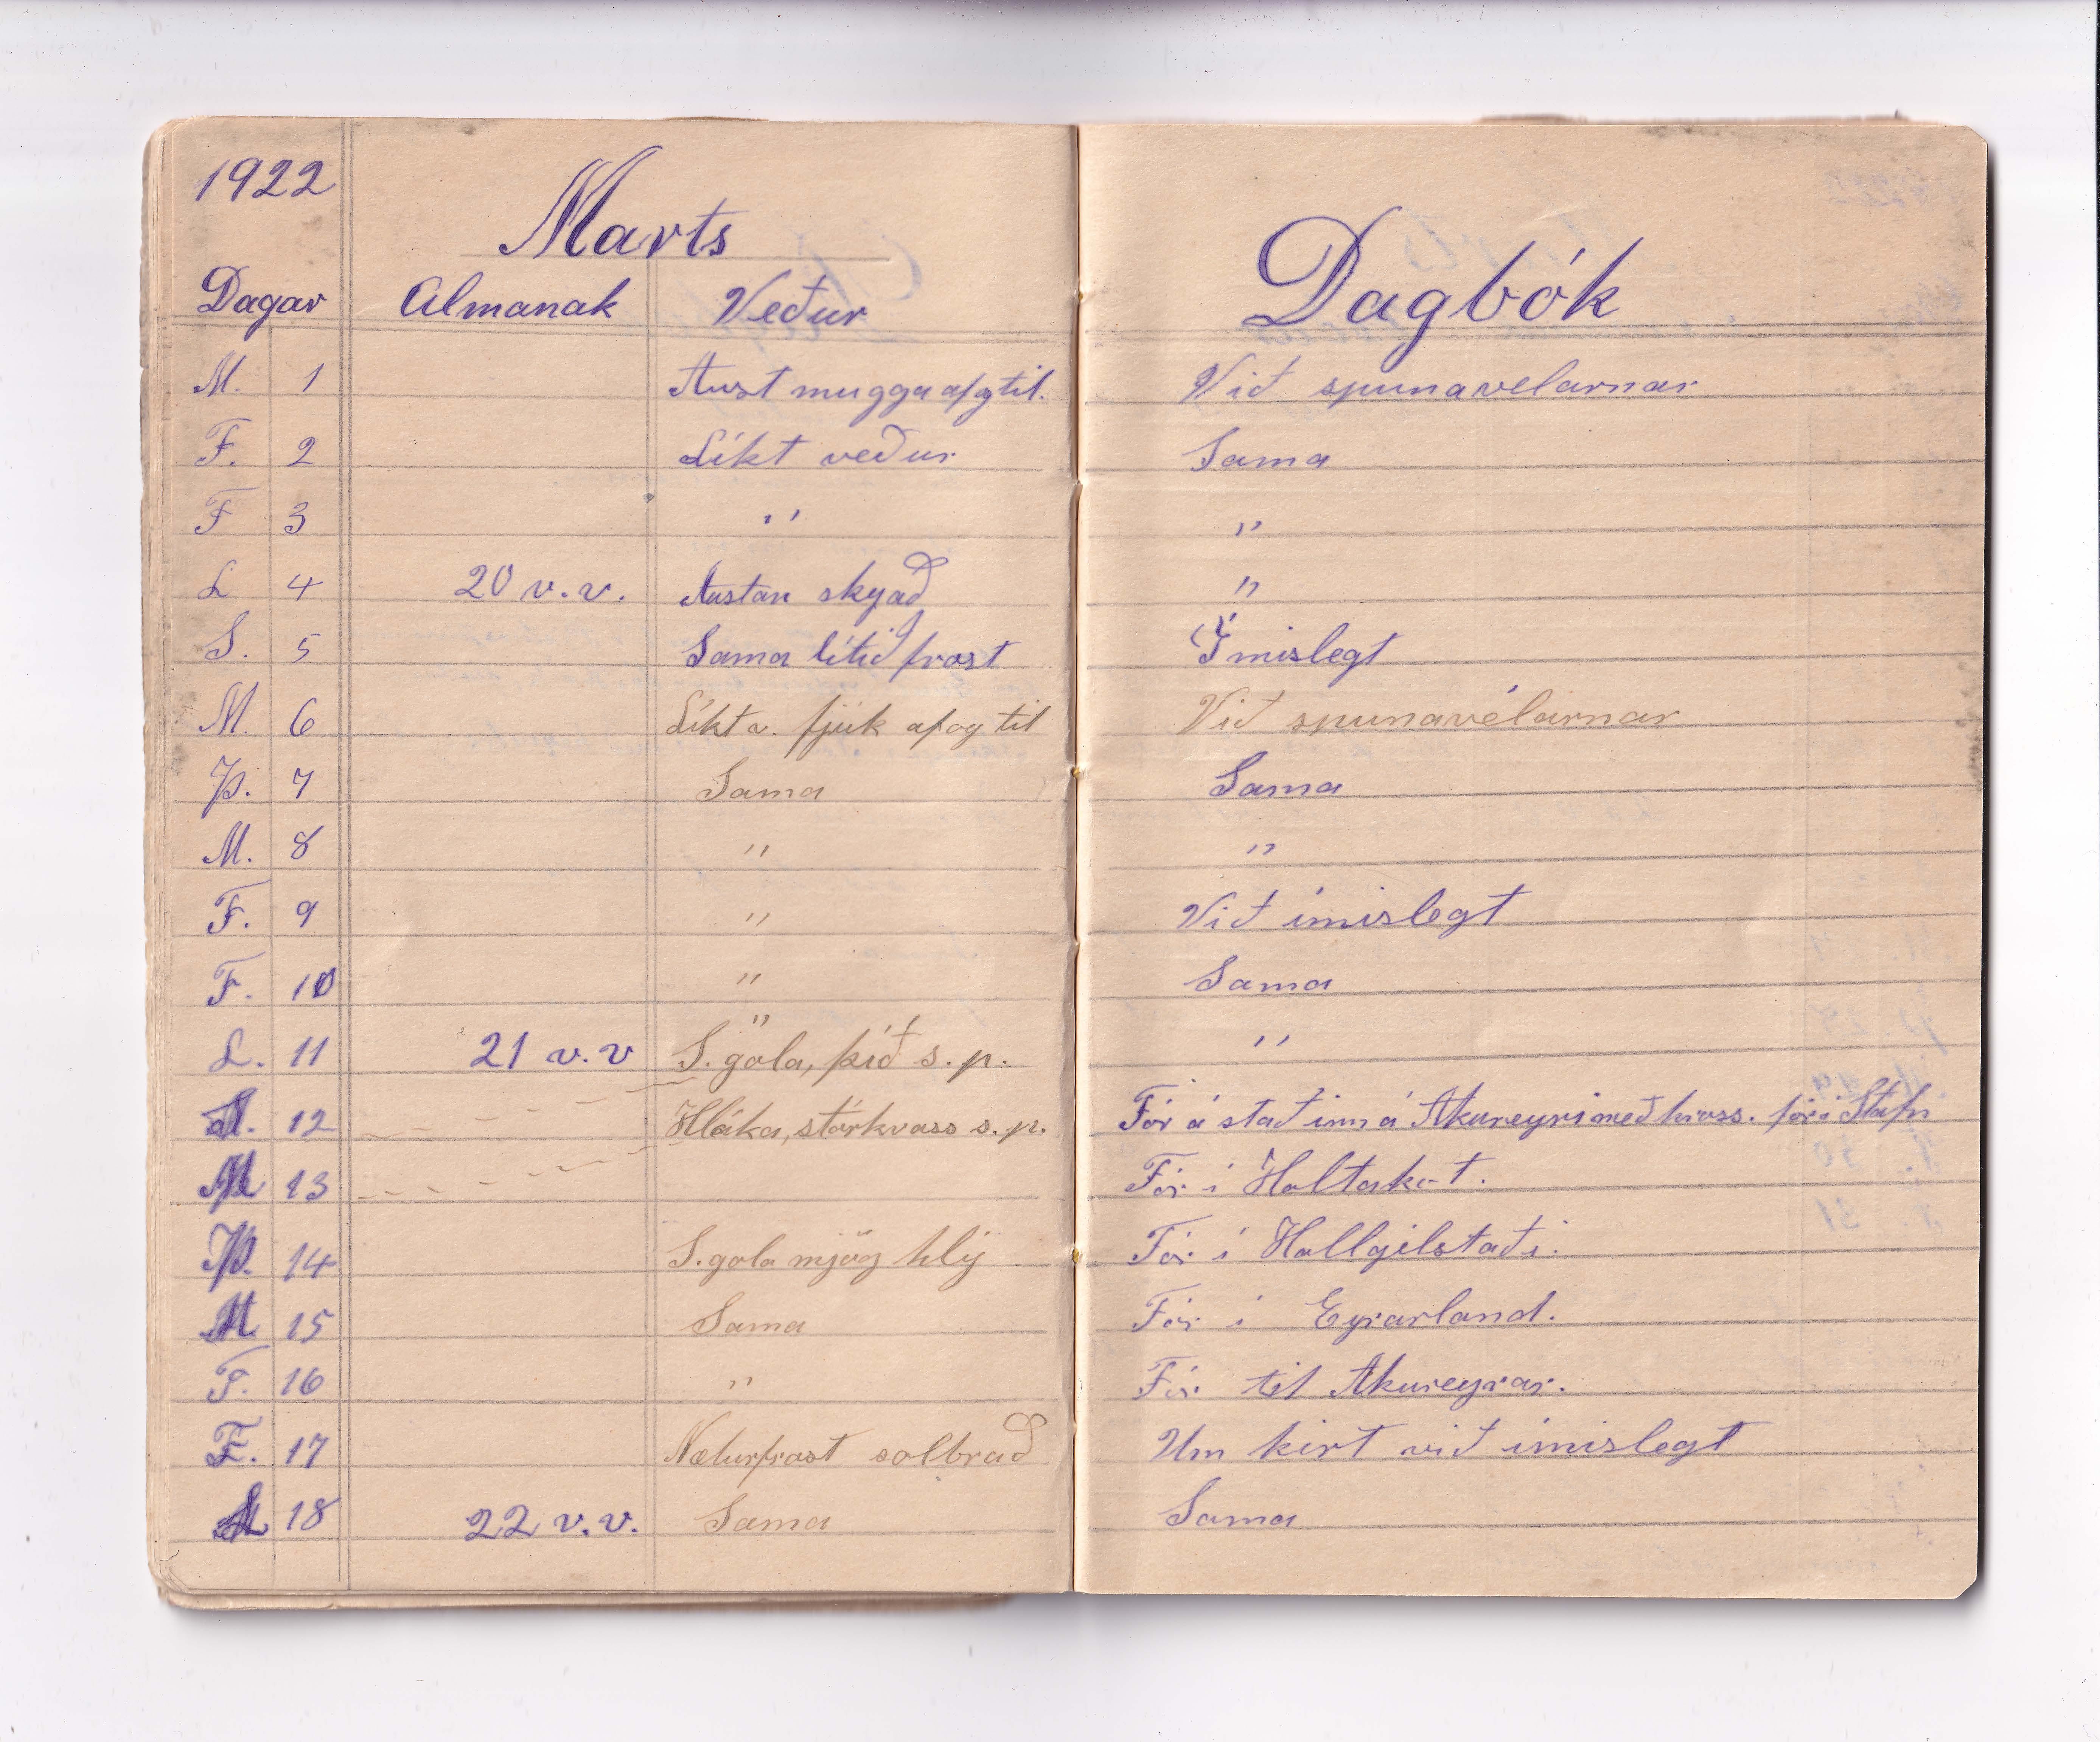 1922
Marts
Dagbók
Dagar Almanak Veður
M. 1 Aust mugga af og til. Við spunavelarnar
F. 2 Líkt veður Sama
F 3 " "
L 4 20 v.v. Austan skyað "
S. 5 Sama lítið frost Ímislegt
M. 6 Líkt v. fjúk af og til Við spunavélarnar
Þ. 7 Sama Sama
M. 8 " "
F. 9 " Við ímislegt
F. 10 " Sama
L. 11 21 v.v " S. gola, þíð s.p. "
S. 12 Hláka, stórkvass s.p. Fór á stað inn á Akureyri með hross. fór í Stafn
M 13 Fór í Holtakot.
Þ. 14 S. gola mjög hlý Fór í Hallgilstaði.
M. 15 Sama Fór í Eyrarland.
F. 16 " Fór til Akureyrar.
F. 17 Næturfrost solbrað Um kirt við ímislegt
L 18 22 v.v. Sama Sama